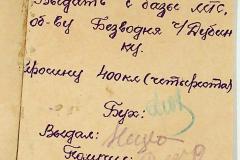 Выдать с базы МТС
об-ву Безводня с/Дубин
ку.
еросину 400 кл (четыреста)
Бух:
Выдал:
Получил: